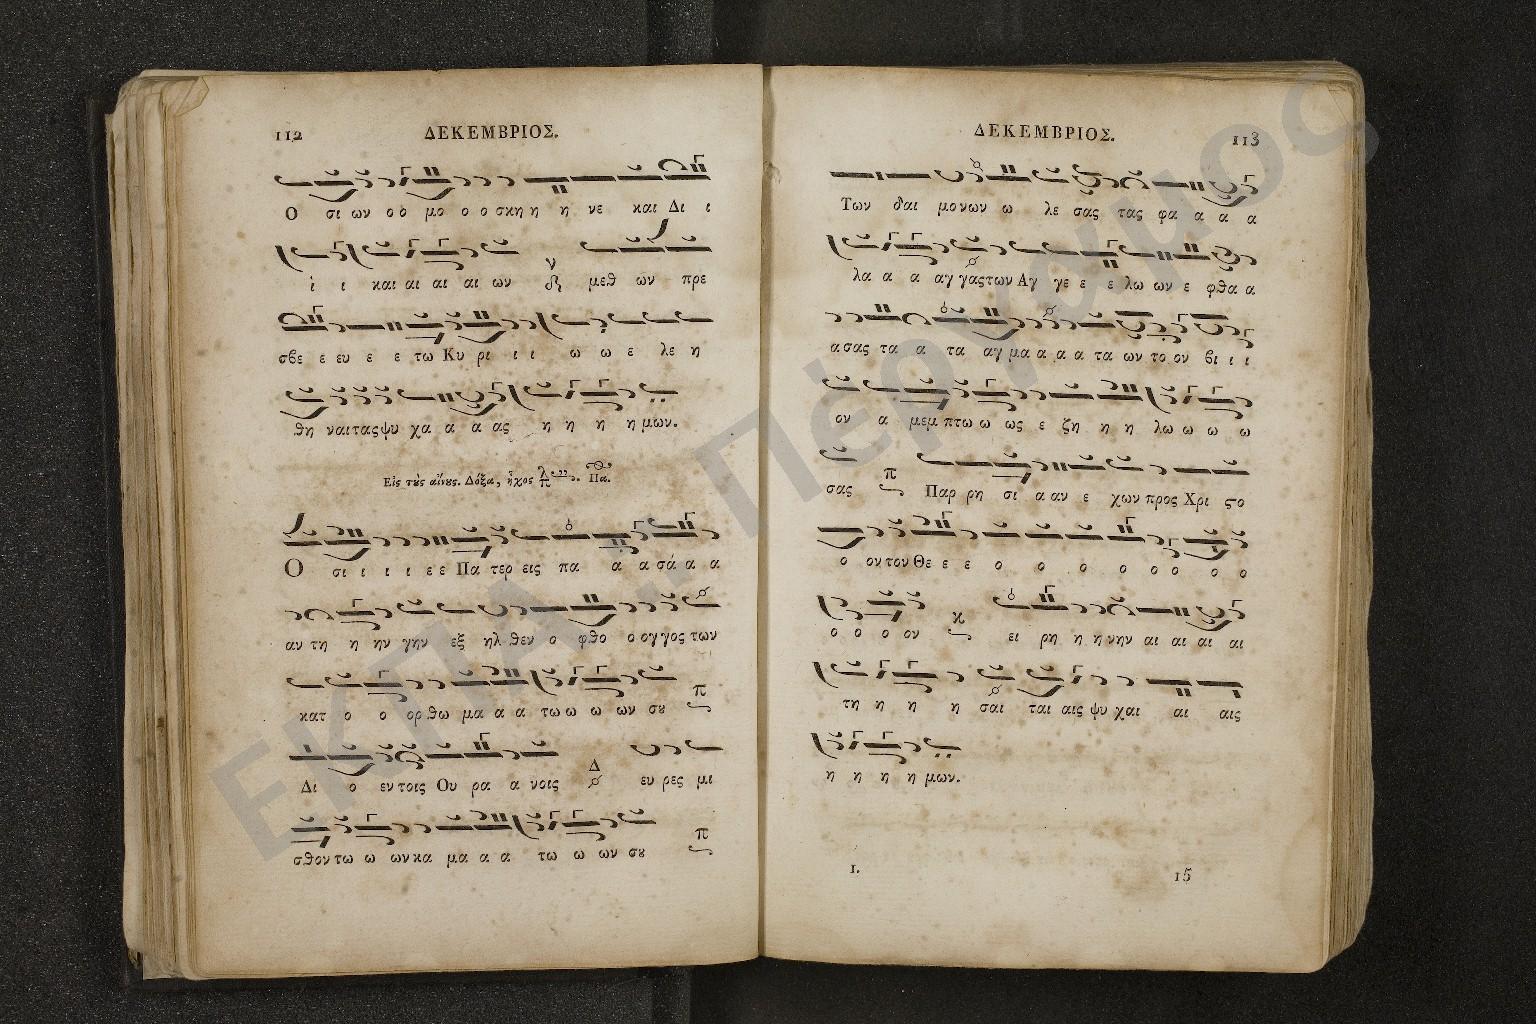 112 ΔΕΚΕΜΒΡΙΟΣ.
Ο σι ων ο ο μο ο ο σκη η η νε και Δι ι
ι ι και αι αι αι αι ων μεθ ων πρε
σβε ε ευ ε ε τω Κυ ρι ι ι ω ω ε λε η
θη ναι τας ψυ χα α α ας η η η η μων.
Εἰς τοὺς αἴνους. Δόξα, ἦχος Πα.
Ο σι ι ι ι ε ε Πα τερ εις πα α α σά α α
αν τη η ην γην εξ ηλ θεν ο φθο ο ογ γος των
κατ ο ο ορ θω μα α α τω ω ω ων σȣ π
Δι ο εν τοις Ου ρα α νοις Δ ευ ρες μι
σθον τω ω ων κα μα α α τω ω ων σȣ π
ΔΕΚΕΜΒΡΙΟΣ. 113
Των δαι μονων ω λε σας τας φα α α α
λα α α αγ γας των Αγ γε ε ε λω ων ε φθα α
α σας τα α τα αγ μα α α α τα ων το ον βι ι ι
ον α μεμ πτω ω ως ε ζη η η λω ω ω ω
σας π Παρ ρη σι α αν ε χων προς Χρι ϛο
ο ον τον Θε ε ε ο ο ο ο ο ο ο ο
ο ο ο ον κ ει ρη η η νην αι αι αι αι
τη η η η σαι ται αις ψυ χαι αι αις
η η η η μων.
I. 15
ΕΚΠΑ. Πέργαμος